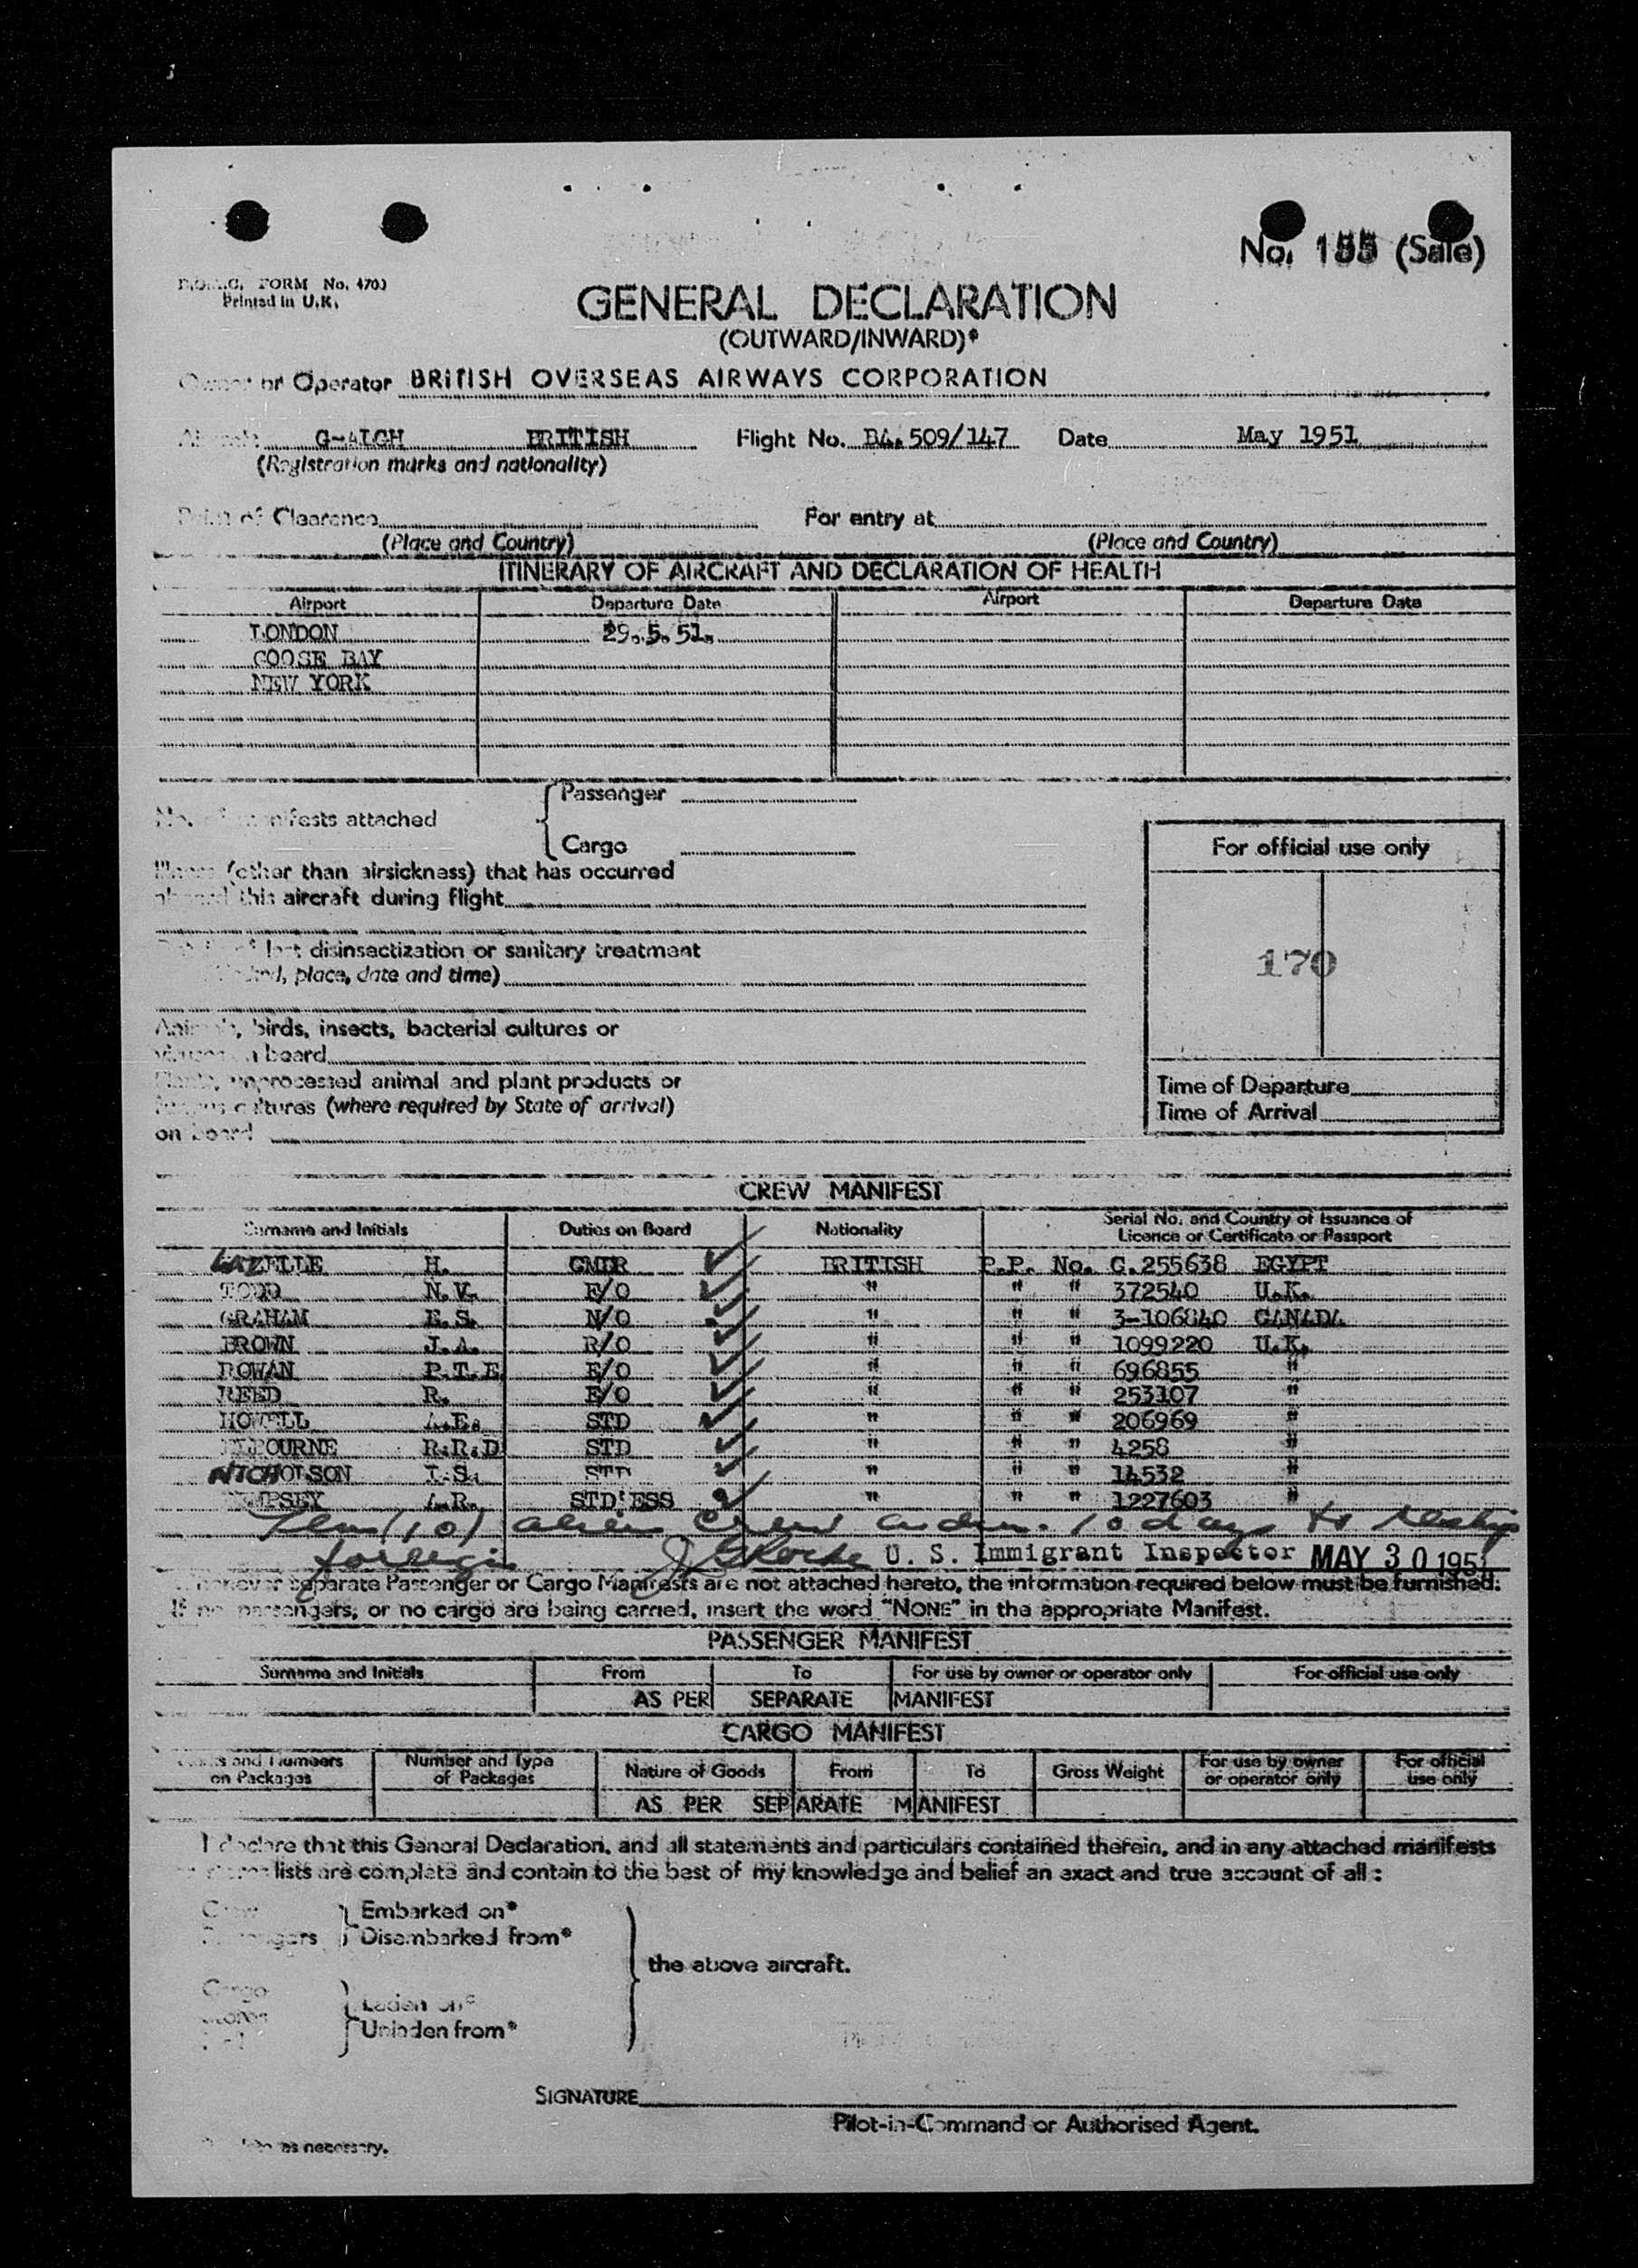 No. 155 (Sale)
FORM No. 4703
Printed in U.K.
GENERAL DECLARATION
(OUTWARD/INWARD)*
Owner or Operator BRITISH OVERSEAS AIRWAYS CORPORATION
G-ALGH BRITISH Flight No. BA. 509/147 Date May 1951
(Registration marks and nationality)
Point of Clearance For entry at
(Place and Country) (Place and Country)
ITINERARY OF AIRCRAFT AND DECLARATION OF HEALTH
Airport Departure Date Airport Departure Date
LONDON 29.5.51.
GOOSE BAY
NEW YORK
Passenger
manifests attached
Cargo
For official use only
Illness (other than airsickness) that has occurred
aboard this aircraft during flight
last disinsectization or sanitary treatment
place, date and time)
170
Animals, birds, insects, bacterial cultures or
board
Plants, unprocessed animal and plant products or
cultures (where required by State of arrival)
on board
Time of Departure
Time of Arrival
CREW MANIFEST
Surname and Initials Duties on Board Nationality Serial No. and Country of Issuance of
Licence or Certificate or Passport
LAZELLE H. CMDR BRITISH P.P. No. C.255638 EGYPT
TODD N.V. F/O " " " 372540 U.K.
GRAHAM E.S. N/O " " " 3-106840 CANADA
BROWN J.A. R/O " " " 1099220 U.K.
ROWAN P.T.E E/O " " " 696855 "
REED R. E/O " " " 253107 "
HOWELL A.E. STD " " " 206969 "
R.R.D STD " " " 4258 "
NICHOLSON I.S. STD " " " 14532 "
A.R. STD'ESS " " " 1227603 "
Ten (10) alien crew adm. 10 days to reship
foreign U. S. Immigrant Inspector MAY 30 1951
Whenever separate Passenger or Cargo Manifests are not attached hereto, the information required below must be furnished.
If no passengers, or no cargo are being carried, insert the word "NONE" in the appropriate Manifest.
PASSENGER MANIFEST
Surname and Initials From To For use by owner or operator only For official use only
AS PER SEPARATE MANIFEST
CARGO MANIFEST
Marks and Numbers on Packages Number and Type of Packages Nature of Goods From To Gross Weight For use by owner or operator only For official use only
AS PER SEPARATE MANIFEST
I declare that this General Declaration, and all statements and particulars contained therein, and in any attached manifests
lists are complete and contain to the best of my knowledge and belief an exact and true account of all:
Crew Embarked on*
Passengers Disembarked from*
the above aircraft.
Cargo Laden on*
Stores Unladen from*
SIGNATURE
Pilot-in-Command or Authorised Agent.
as necessary.